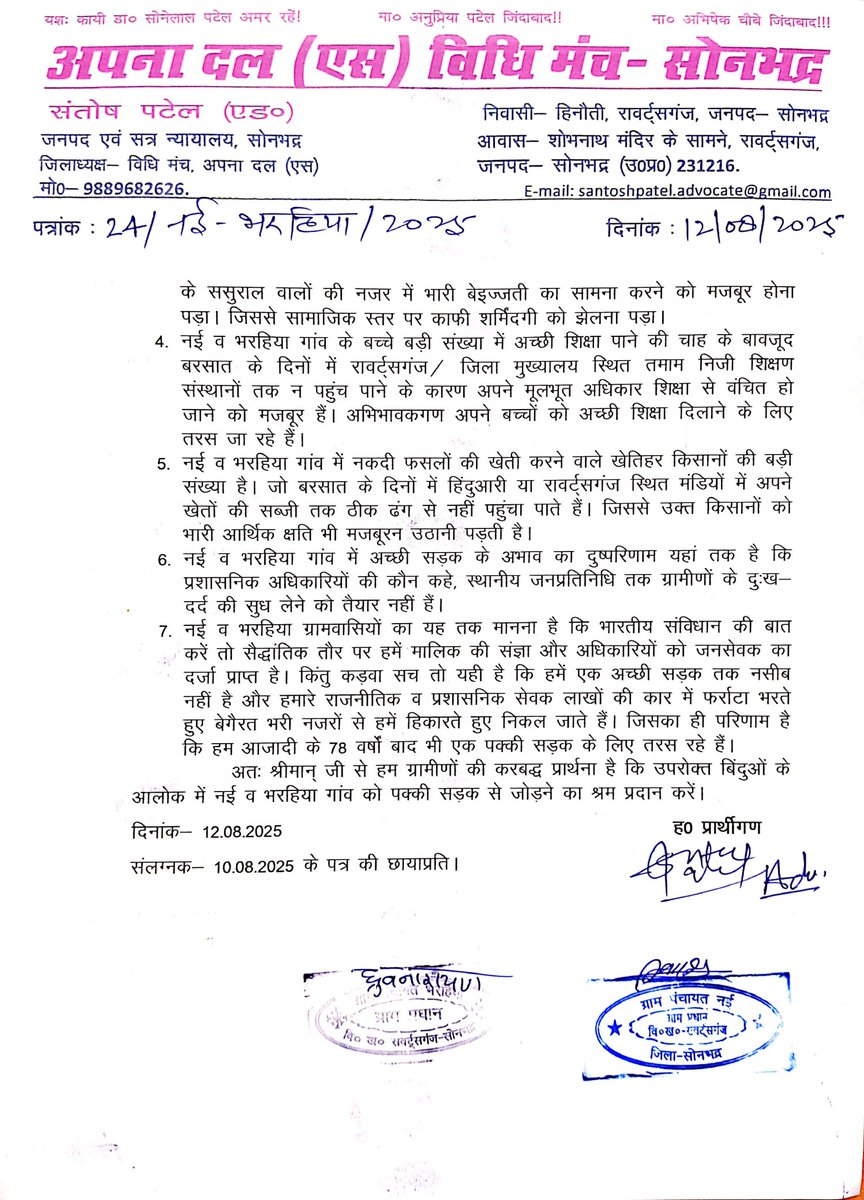 यशः कायी डा० सोनेलाल पटेल अमर रहें! मा० अनुप्रिया पटेल जिंदाबाद!! मा० अभिषेक चौबे जिंदाबाद!!!
अपना दल (एस) विधि मंच- सोनभद्र
संतोष पटेल (एड०)
जनपद एवं सत्र न्यायालय, सोनभद्र
जिलाध्यक्ष– विधि मंच, अपना दल (एस)
मो0– 9889682626.
निवासी– हिनौती, रावर्ट्सगंज, जनपद– सोनभद्र
आवास– शोभनाथ मंदिर के सामने, रावर्ट्सगंज,
जनपद– सोनभद्र (उ0प्र0) 231216.
E-mail: santoshpatel.advocate@gmail.com
पत्रांक : 24/नई-भरहिया/2025 दिनांक : 12/08/2025
के ससुराल वालों की नजर में भारी बेइज्जती का सामना करने को मजबूर होना
पड़ा। जिससे सामाजिक स्तर पर काफी शर्मिंदगी को झेलना पड़ा।
4. नई व भरहिया गांव के बच्चे बड़ी संख्या में अच्छी शिक्षा पाने की चाह के बावजूद
बरसात के दिनों में रावर्ट्सगंज/ जिला मुख्यालय स्थित तमाम निजी शिक्षण
संस्थानों तक न पहुंच पाने के कारण अपने मूलभूत अधिकार शिक्षा से वंचित हो
जाने को मजबूर हैं। अभिभावकगण अपने बच्चों को अच्छी शिक्षा दिलाने के लिए
तरस जा रहे हैं।
5. नई व भरहिया गांव में नकदी फसलों की खेती करने वाले खेतिहर किसानों की बड़ी
संख्या है। जो बरसात के दिनों में हिंदुआरी या रावर्ट्सगंज स्थित मंडियों में अपने
खेतों की सब्जी तक ठीक ढंग से नहीं पहुंचा पाते हैं। जिससे उक्त किसानों को
भारी आर्थिक क्षति भी मजबूरन उठानी पड़ती है।
6. नई व भरहिया गांव में अच्छी सड़क के अभाव का दुष्परिणाम यहां तक है कि
प्रशासनिक अधिकारियों की कौन कहे, स्थानीय जनप्रतिनिधि तक ग्रामीणों के दुःख–
दर्द की सुध लेने को तैयार नहीं हैं।
7. नई व भरहिया ग्रामवासियों का यह तक मानना है कि भारतीय संविधान की बात
करें तो सैद्धांतिक तौर पर हमें मालिक की संज्ञा और अधिकारियों को जनसेवक का
दर्जा प्राप्त है। किंतु कड़वा सच तो यही है कि हमें एक अच्छी सड़क तक नसीब
नहीं है और हमारे राजनीतिक व प्रशासनिक सेवक लाखों की कार में फर्राटा भरते
हुए बेगैरत भरी नजरों से हमें हिकारते हुए निकल जाते हैं। जिसका ही परिणाम है
कि हम आजादी के 78 वर्षों बाद भी एक पक्की सड़क के लिए तरस रहे हैं।
अतः श्रीमान् जी से हम ग्रामीणों की करबद्ध प्रार्थना है कि उपरोक्त बिंदुओं के
आलोक में नई व भरहिया गांव को पक्की सड़क से जोड़ने का श्रम प्रदान करें।
दिनांक– 12.08.2025 ह0 प्रार्थीगण
संलग्नक– 10.08.2025 के पत्र की छायाप्रति।
Adv.
ध्रुवनारायण
ग्राम प्रधान
वि० ख० रावर्ट्सगंज-सोनभद्र
ग्राम पंचायत नई
ग्राम प्रधान
वि०ख०-रावर्ट्सगंज
जिला-सोनभद्र